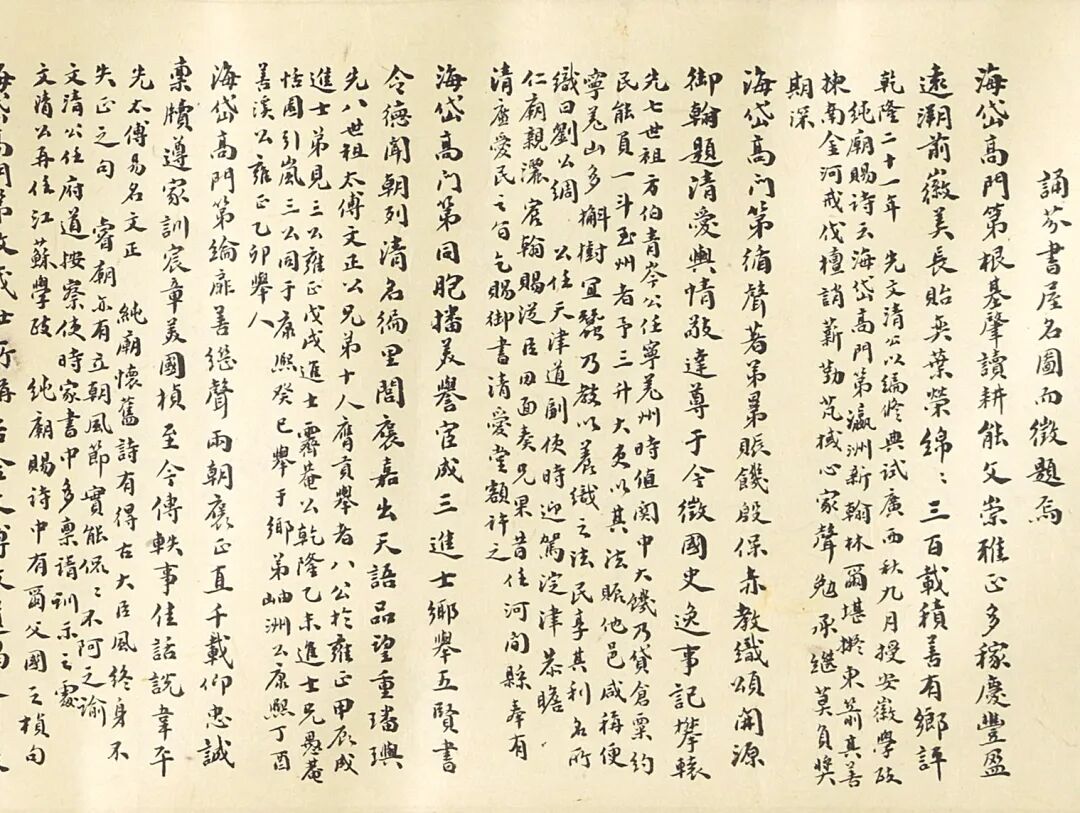 誦芬書屋名圖而徵題焉
海岱高門第根基肇讀耕能文崇雅正多稼慶豐盈
遠溯前徽美長貽奕葉榮綿〻三百載積善有鄉評
乾隆二十一年 先文清公以編修典試廣西秋九月授安徽學政
純廟賜詩云海岱高門第瀛洲新翰林爾堪擬東箭其善
棟南金河戒伐檀誚薪勤芃棫心家聲勉承繼莫負獎
期深
海岱高门第循聲著弟昆賑饑殷保赤教織頌開源
御翰題清愛輿情敬達尊于今徵國史逸事記攀轅
先七世祖方伯青岑公任寧羌州時值関中大饑乃貸倉粟約
民能負一斗至州者予三升大吏以其法賑他邑咸稱便
寧羌山多槲樹宜蠶乃教以養織之法民享其利名所
織曰劉公綢 公任天津道副使時迎駕淀津恭瞻
仁廟親灑宸翰賜從臣因面奏兄果昔任河间縣奉有
清廉愛民之旨乞賜御書清愛堂額許之
海岱高门第同胞播美譽宦成三進士鄉舉五賢書
令德聞朝列清名徧里閭褒嘉出天語品望重璠璵
先八世祖太傅文正以兄弟十人膺貢舉者八公於雍正甲辰成
進士弟見三公雍正戊戌進士霽菴公乾隆乙未進士兄愚菴
恬園引嵐三公同于康熙癸巳舉于鄉弟岫洲公康熙丁酉
善溪公雍正乙卯舉人
海岱高門第綸扉善繼聲兩朝褒正直千載仰忠誠
稟牘遵家訓宸章美國楨至今傳軼事佳話說韋平
先太傅易名文正 純廟懷舊詩有得古大臣風終身不
失正之句 睿廟亦有立朝風節實能侃〻不阿之諭
文清公任府道按察使時家書中多稟請訓示之處
文清公再任江蘇學政 純廟賜詩中有爾父國之楨句
海岱高門第